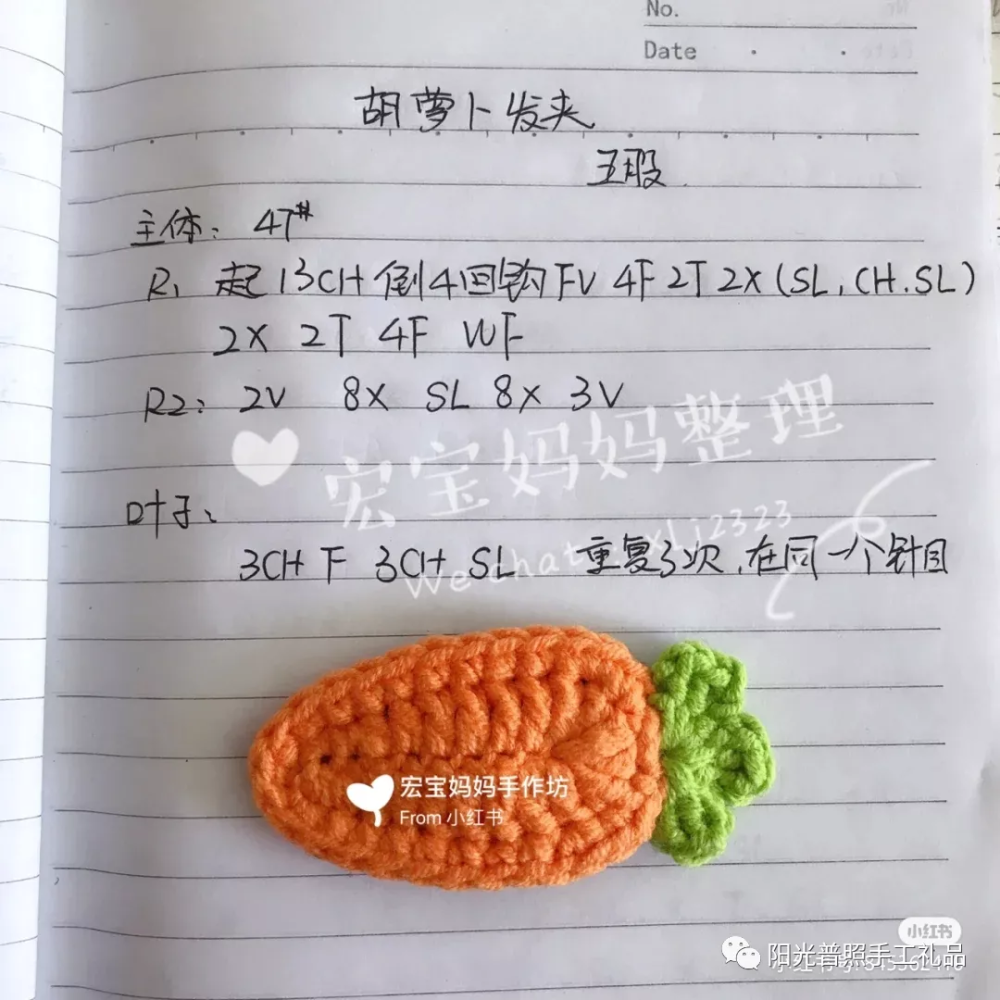 No.
Date
胡萝卜发夹
五股
主体: 47#
R1 起13CH 倒4回钩 FV 4F 2T 2X (SL, CH. SL)
2X 2T 4F WF
R2: 2V 8X SL 8X 3V
宏宝妈妈整理
叶子:
3CH F 3CH SL 重复3次, 在同一个针目
宏宝妈妈手作坊
From 小红书
小红书
阳光普照手工礼品